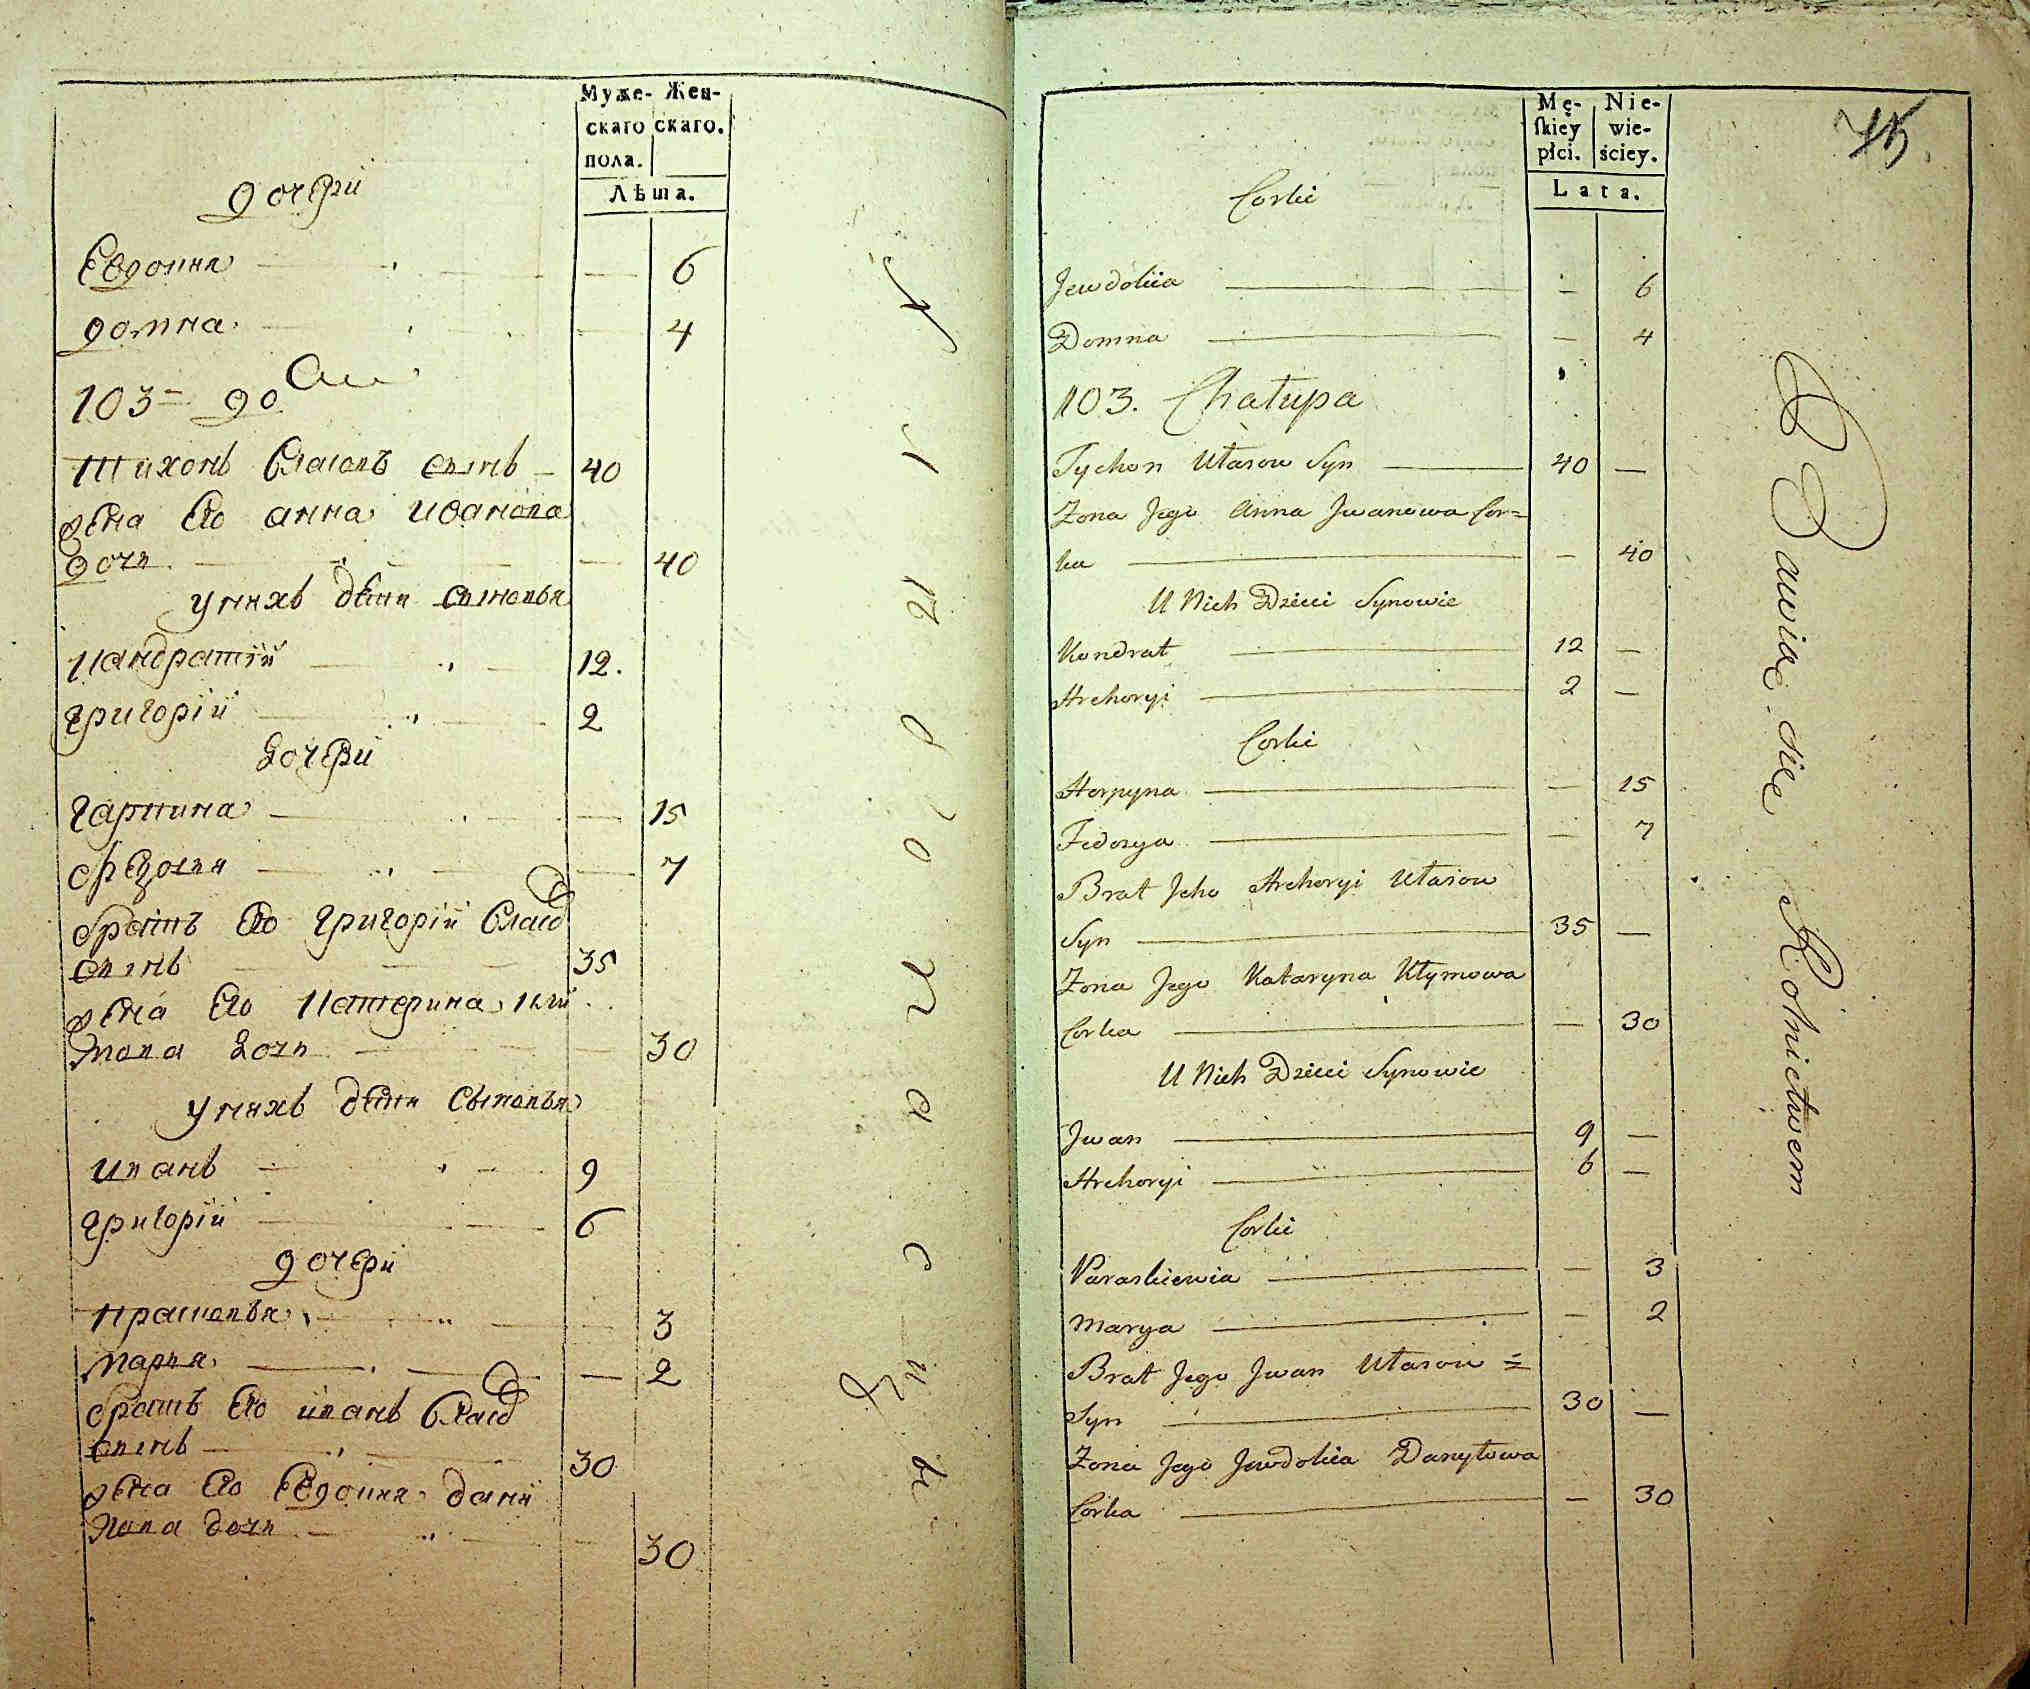 Муже- Жен-
скаго скаго.
пола.
Лѣта.
дочери
Евдокия 6
домна 4
103 дом
Тихонъ Власовъ сынъ 40
жена Его анна Иванова
дочь 40
у нихъ дети сыновья
Кандратий 12.
Григорій 2
дочери
Гарпина 15
Федося 7
братъ Его Григорій Власов
сынъ 35
жена Его Катерина Кли
мова дочь 30
у нихъ дети сыновья
иванъ 9
Григорій 6
дочери
Прасковья 3
Марья 2
братъ Его иванъ Власов
сынъ 30
жена Его Евдокия дани
лова дочь 30
Mę- Nie-
skiey wie-
płci. ściey.
Lata.
75.
Corki
Jewdokia 6
Domna 4
103. Chałupa
Tychon Ułasow Syn 40
Zona Jego Anna Jwanowa Cor=
ka 40
U Nich Dzieci Synowie
Kondrat 12
Hrehoryi 2
Corki
Horpyna 15
Fedosya 7
Brat Jeho Hrehoryi Ułasow
Syn 35
Zona Jego Kataryna Kłymowa
Corka 30
U Nich Dzieci Synowie
Jwan 9
Hrehoryi 6
Corki
Paraskiewia 3
Marya 2
Brat Jego Jwan Ułasow =
Syn 30
Zona Jego Jewdokia Danyłowa
Corka 30
Bawiąc się Rolnictwem